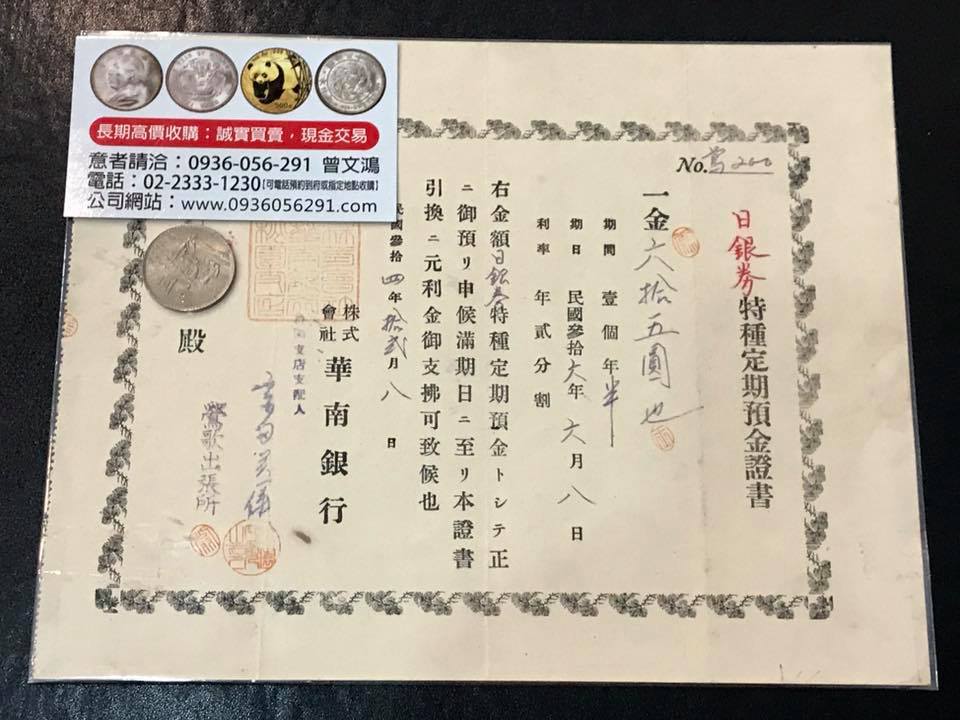 長期高價收購：誠實買賣，現金交易
意者請洽：0936-056-291 曾文鴻
電話：02-2333-1230【可電話預約到府或指定地點收購】
公司網站：www.0936056291.com
No.鶯200
日銀券特種定期預金證書
一金六拾五圓也
期間 壹個年半
期日 民國參拾六年六月八日
利率 年貳分 割
右金額日銀券特種定期預金トシテ正
ニ御預リ申候滿期日ニ至リ本證書
引換ニ元利金御支拂可致候也
民國參拾四年拾貳月八日
株式會社 華南銀行
支店支配人
鶯歌出張所
殿